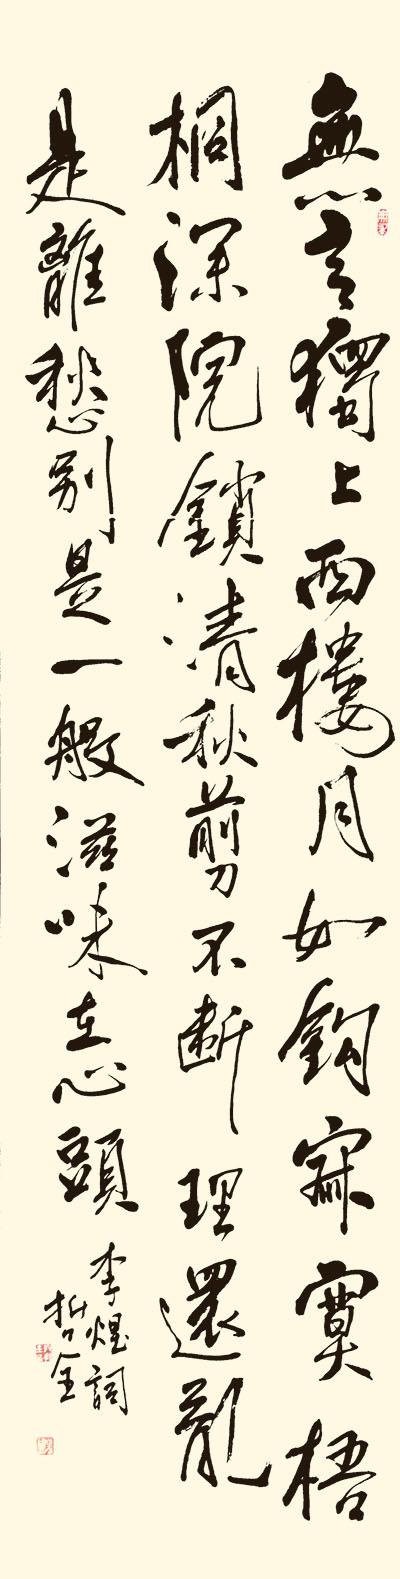 無言獨上西樓月如鉤寂寞梧
桐深院鎖清秋剪不斷理還亂
是離愁別是一般滋味在心頭
李煜詞
哲全